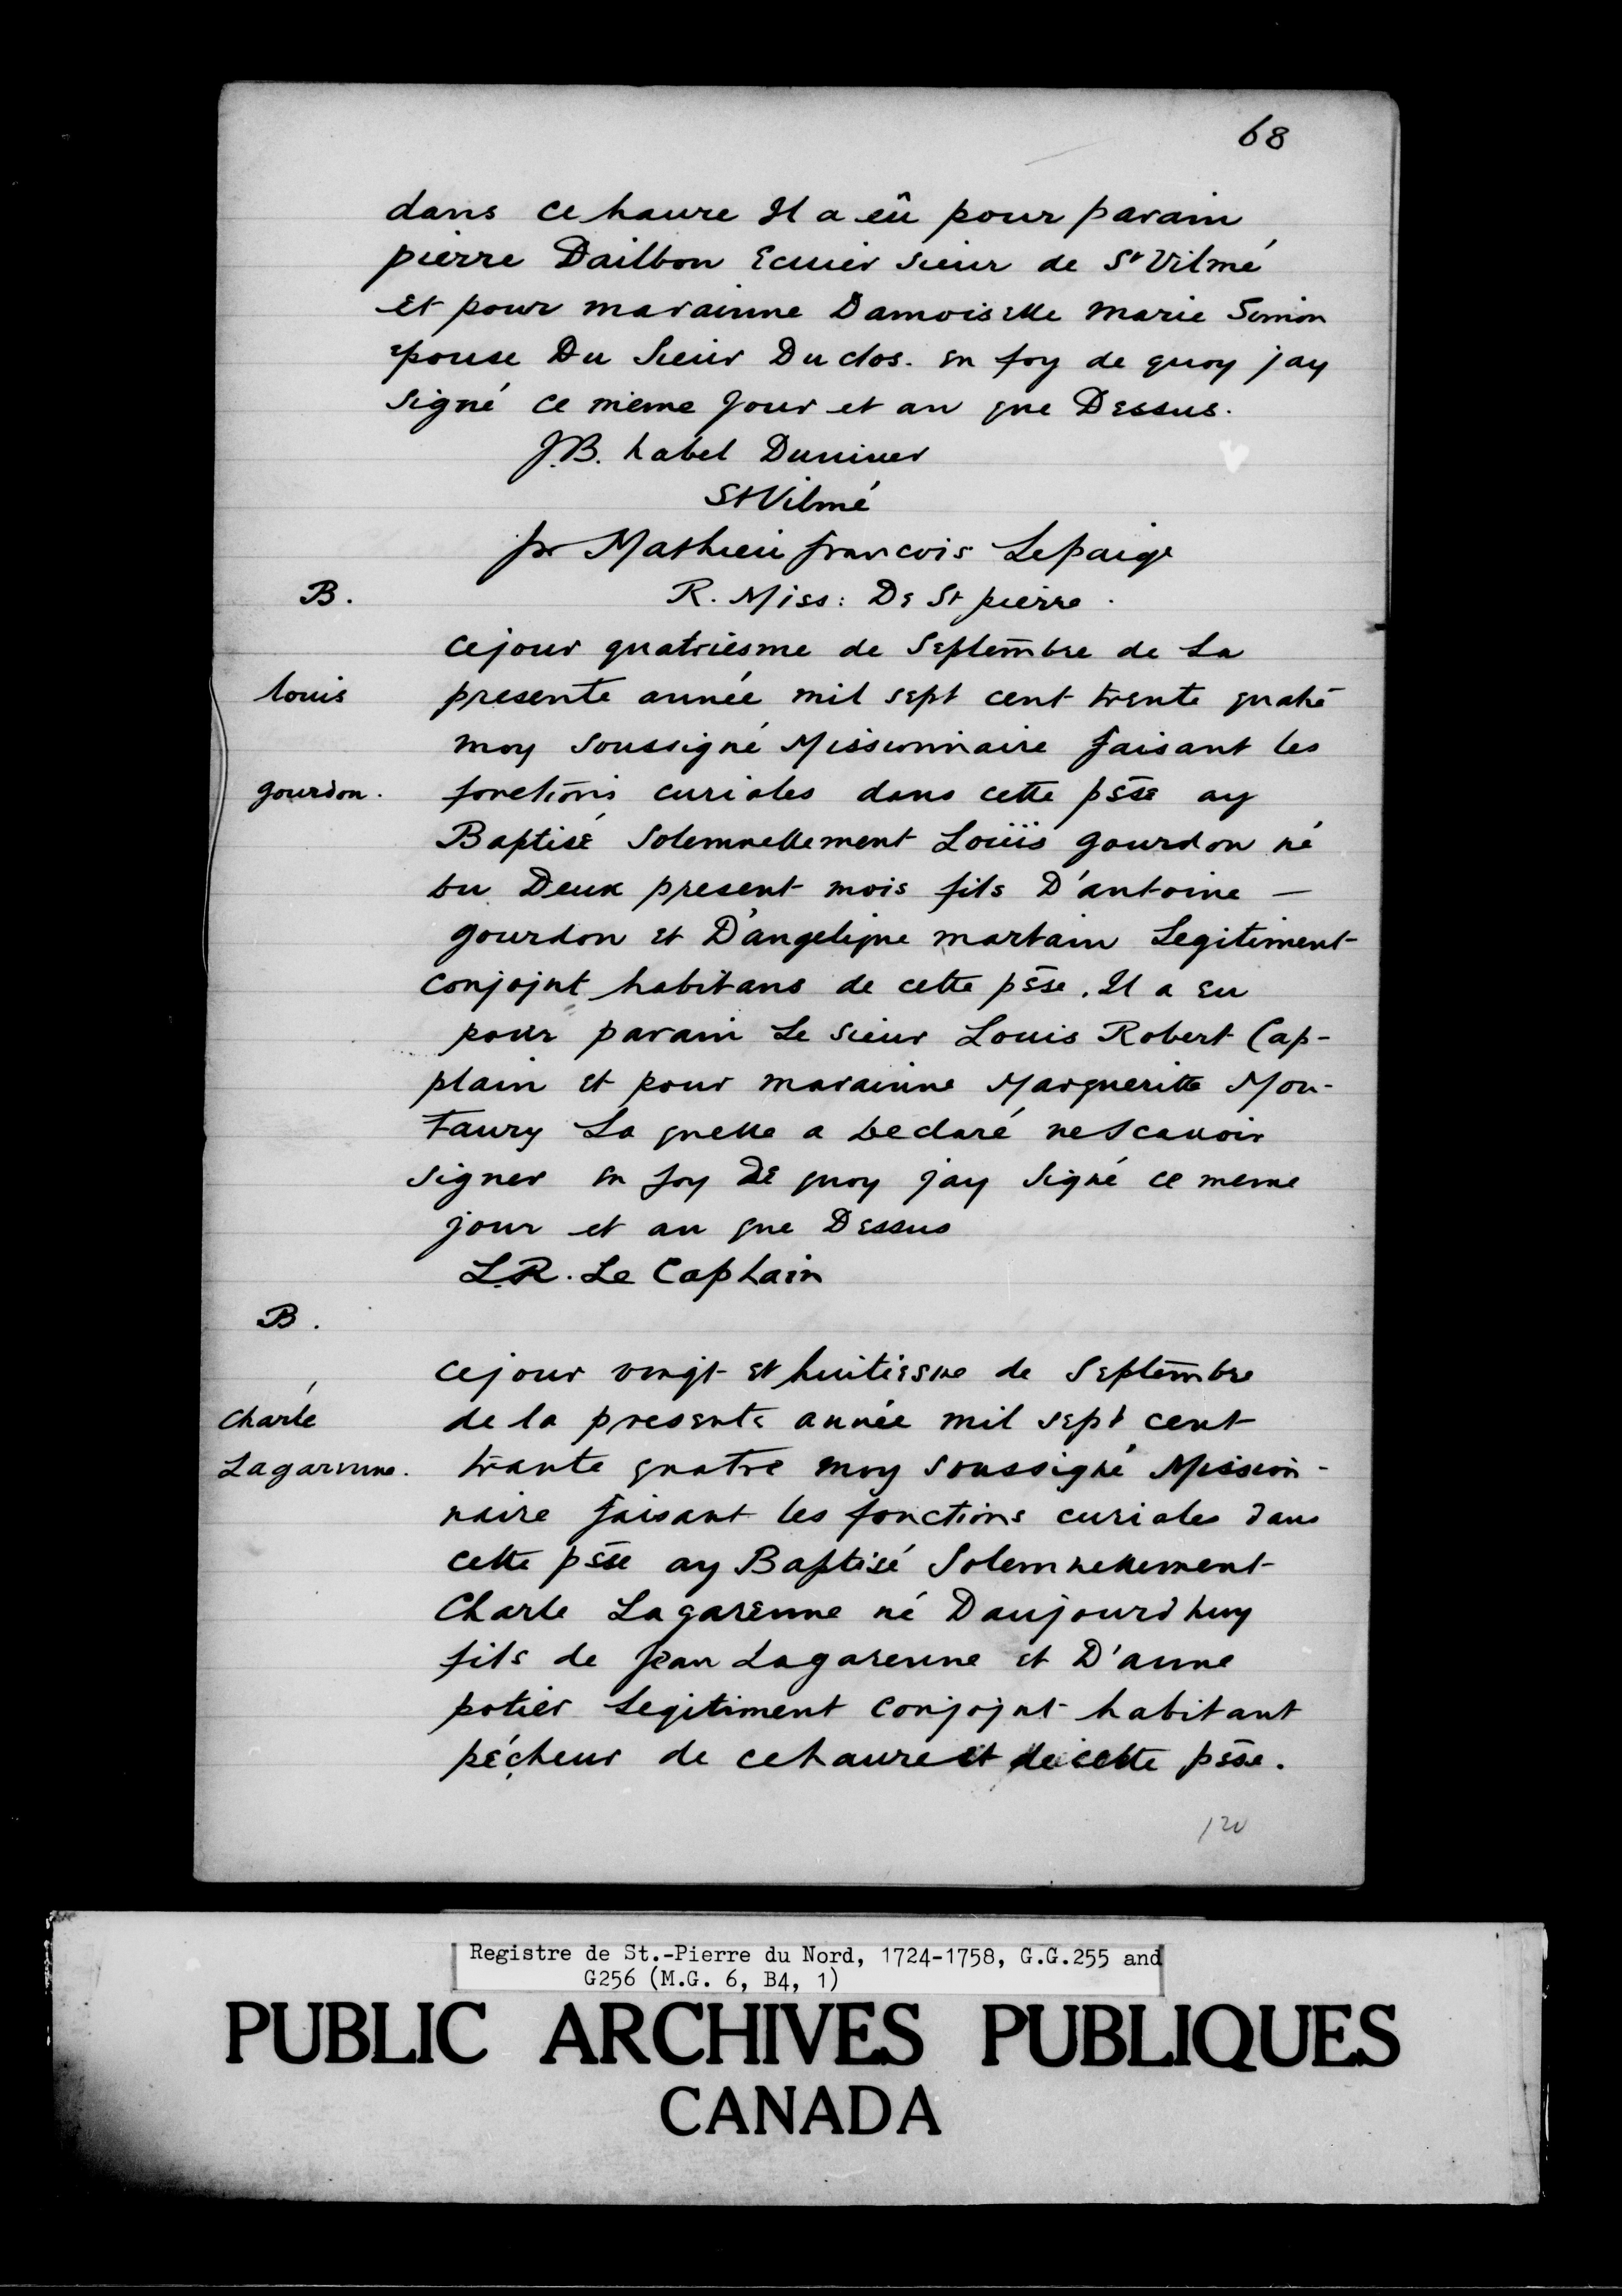 68
dans ce haure Il a eû pour parain
pierre Dailbon Ecuier sieur de St Vilmé
et pour marainne Damoiselle Marie Simon
epouse Du Sieur Duclos. en foy de quoy jay
signé ce meme Jour et an que Dessus.
J.B. habel Duniver
St Vilmé
fr Mathieu francois Lepaige
B.
R. Miss: De St pierre.
cejour quatriesme de Septem̄bre de La
louis
presente année mil sept cent trente quatre
moy soussigné Missionnaire faisant les
gourdon.
fonctiōns curiales dans cette pss̄e ay
Baptisé Solemnellement Loüis gourdon né
du Deux present mois fils D'antoine —
gourdon et D'angelique martain Legitiment
conjojnt habitans de cette pss̄e. Il a eu
pour parain Le sieur Louis Robert Cap-
plain et pour marainne Margueritte Mon-
taury La quelle a declaré ne Scauoir
signer en foy de quoy jay signé ce meme
jour et an que Dessus
L.R. Le Caplain
B.
cejour vingt et huitiesme de Septem̄bre
Charlé
de la presente année mil sept cent
Lagarenne.
trante quatre moy soussigné Mission-
naire faisant les fonctions curiales dans
cette pss̄e ay Baptisé Solemnellement
Charle Lagarenne né Daujourdhuy
fils de Jean Lagarenne et D'anne
potier Legitiment conjojnt habitant
pécheur de cehaure et de cette pss̄e.
120
Registre de St.-Pierre du Nord, 1724-1758, G.G.255 and
G256 (M.G. 6, B4, 1)
PUBLIC ARCHIVES PUBLIQUES
CANADA